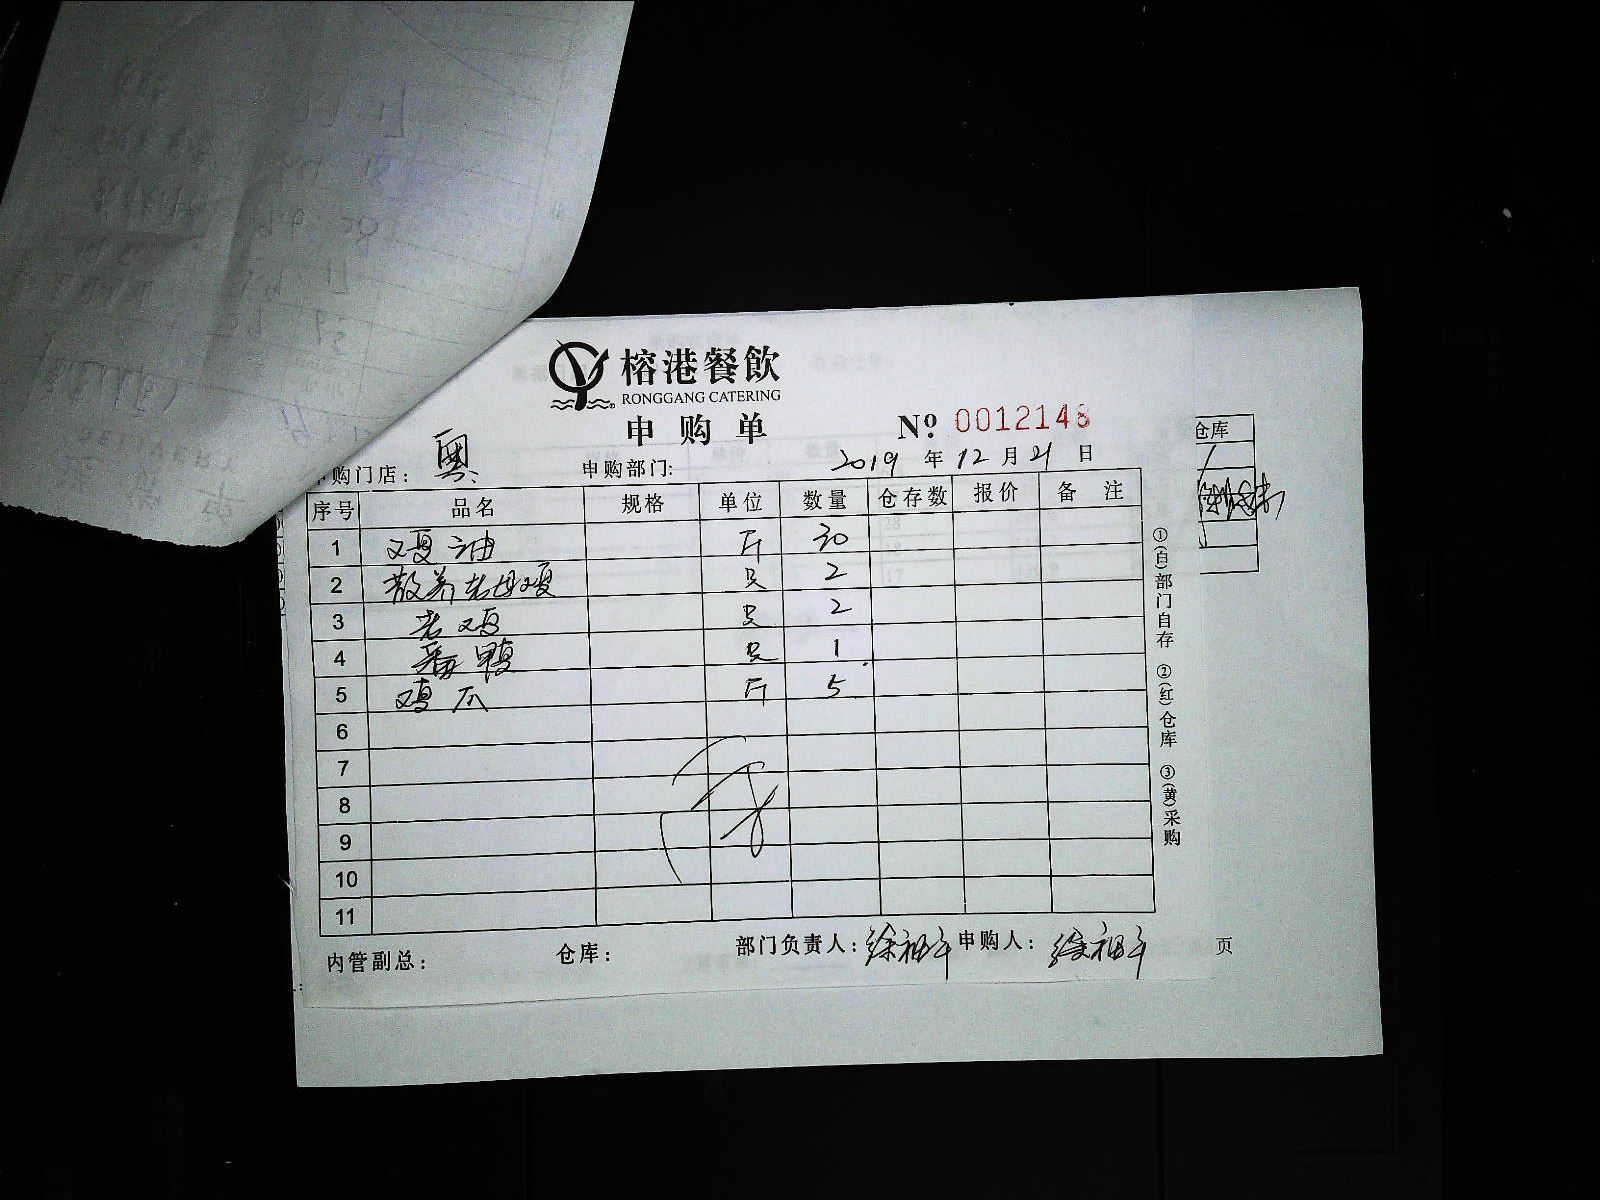 榕港餐飲
RONGGANG CATERING
申购单
Nº 0012148
购门店: 粤 申购部门: 2019 年 12 月 21 日
序号 品名 规格 单位 数量 仓存数 报价 备注
1 鸡油 斤 30
2 散养老母鸡 只 2
3 老鸡 只 2
4 番鸭 只 1
5 鸡爪 斤 5
6
7
8
9
10
11
内管副总: 仓库: 部门负责人: 徐祖平 申购人: 徐祖平
①(白)部门自存 ②(红)仓库 ③(黄)采购
仓库
页